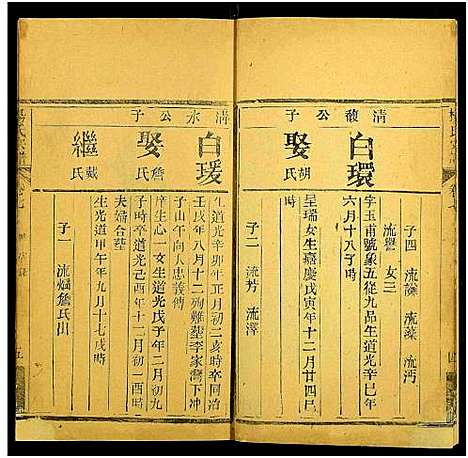 清馥公子
白環
字玉甫號象五從九品生道光辛巳年
六月十八子時
娶胡氏
呈瑞女生嘉慶戊寅年十二月廿四巳
時
子四 流謙 流藻 流沔
流譽 女三
子二 流芳 流澤
清永公子
白瑗
生道光辛卯年正月初二亥時卒同治
壬戌年八月十二殉難塟李家灣下冲
子山午向人忠義傳
娶詹氏
庠生心一女生道光戊子年二月初九
子時卒道光己酉年十二月初一酉時
夫婦合塟
繼戴氏
生光道甲午年九月十七戌時
子一 流燆詹氏出